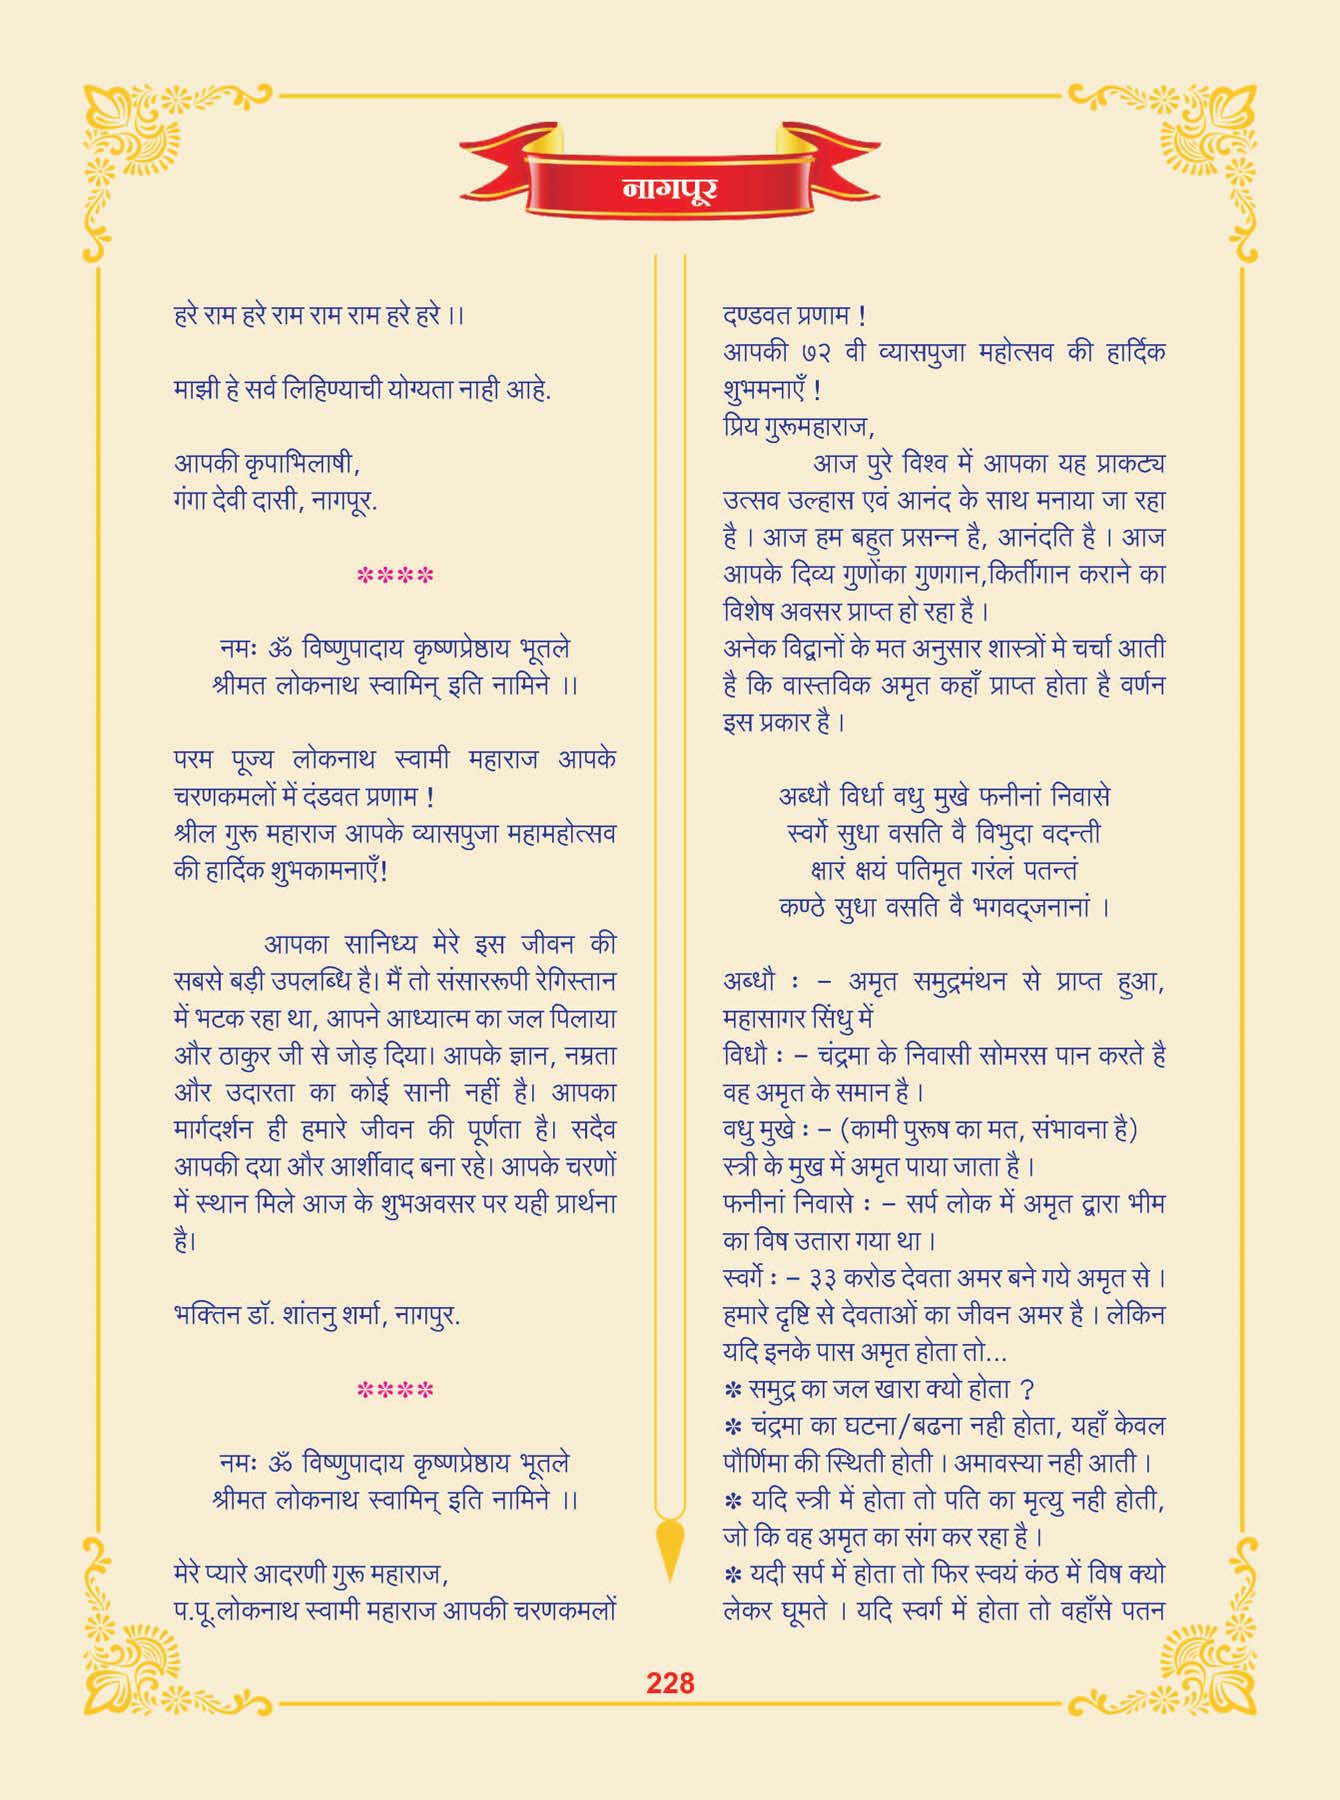 नागपूर
हरे राम हरे राम राम राम हरे हरे ।।
माझी हे सर्व लिहिण्याची योग्यता नाही आहे.
आपकी कृपाभिलाषी,
गंगा देवी दासी, नागपूर.
****
नमः ॐ विष्णुपादाय कृष्णप्रेष्ठाय भूतले
श्रीमत लोकनाथ स्वामिन् इति नामिने ।।
परम पूज्य लोकनाथ स्वामी महाराज आपके
चरणकमलों में दंडवत प्रणाम !
श्रील गुरू महाराज आपके व्यासपुजा महामहोत्सव
की हार्दिक शुभकामनाएँ!
आपका सानिध्य मेरे इस जीवन की
सबसे बड़ी उपलब्धि है। मैं तो संसाररूपी रेगिस्तान
में भटक रहा था, आपने आध्यात्म का जल पिलाया
और ठाकुर जी से जोड़ दिया। आपके ज्ञान, नम्रता
और उदारता का कोई सानी नहीं है। आपका
मार्गदर्शन ही हमारे जीवन की पूर्णता है। सदैव
आपकी दया और आर्शीवाद बना रहे। आपके चरणों
में स्थान मिले आज के शुभअवसर पर यही प्रार्थना
है।
भक्तिन डॉ. शांतनु शर्मा, नागपुर.
****
नमः ॐ विष्णुपादाय कृष्णप्रेष्ठाय भूतले
श्रीमत लोकनाथ स्वामिन् इति नामिने ।।
मेरे प्यारे आदरणी गुरू महाराज,
प.पू.लोकनाथ स्वामी महाराज आपकी चरणकमलों
दण्डवत प्रणाम !
आपकी ७२ वी व्यासपुजा महोत्सव की हार्दिक
शुभमनाएँ !
प्रिय गुरूमहाराज,
आज पुरे विश्व में आपका यह प्राकट्य
उत्सव उल्हास एवं आनंद के साथ मनाया जा रहा
है । आज हम बहुत प्रसन्न है, आनंदति है । आज
आपके दिव्य गुणोंका गुणगान,किर्तीगान कराने का
विशेष अवसर प्राप्त हो रहा है ।
अनेक विद्वानों के मत अनुसार शास्त्रों मे चर्चा आती
है कि वास्तविक अमृत कहाँ प्राप्त होता है वर्णन
इस प्रकार है ।
अब्धौ विर्धा वधु मुखे फनीनां निवासे
स्वर्गे सुधा वसति वै विभुदा वदन्ती
क्षारं क्षयं पतिमृत गरंलं पतन्तं
कण्ठे सुधा वसति वै भगवद्जनानां ।
अब्धौ : – अमृत समुद्रमंथन से प्राप्त हुआ,
महासागर सिंधु में
विधौ : – चंद्रमा के निवासी सोमरस पान करते है
वह अमृत के समान है ।
वधु मुखे : – (कामी पुरूष का मत, संभावना है)
स्त्री के मुख में अमृत पाया जाता है ।
फनीनां निवासे : – सर्प लोक में अमृत द्वारा भीम
का विष उतारा गया था ।
स्वर्गे : – ३३ करोड देवता अमर बने गये अमृत से ।
हमारे दृष्टि से देवताओं का जीवन अमर है । लेकिन
यदि इनके पास अमृत होता तो...
* समुद्र का जल खारा क्यो होता ?
* चंद्रमा का घटना/बढना नही होता, यहाँ केवल
पौर्णिमा की स्थिती होती । अमावस्या नही आती ।
* यदि स्त्री में होता तो पति का मृत्यु नही होती,
जो कि वह अमृत का संग कर रहा है ।
* यदी सर्प में होता तो फिर स्वयं कंठ में विष क्यो
लेकर घूमते । यदि स्वर्ग में होता तो वहाँसे पतन
228